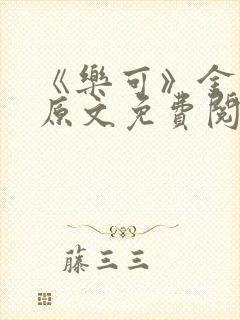 《樂可》全
原文免費閱
藤三三